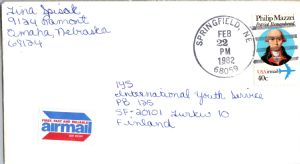 Tina Spisak
9124 Lamont
Omaha, Nebraska
68124
SPRINGFIELD, NE
FEB
22
PM
1982
68059
Philip Mazzei
Patriot Remembered
USAirmail
40c
IYS
International Youth Service
PO 125
SF-20101 Turku 10
Finland
airmail